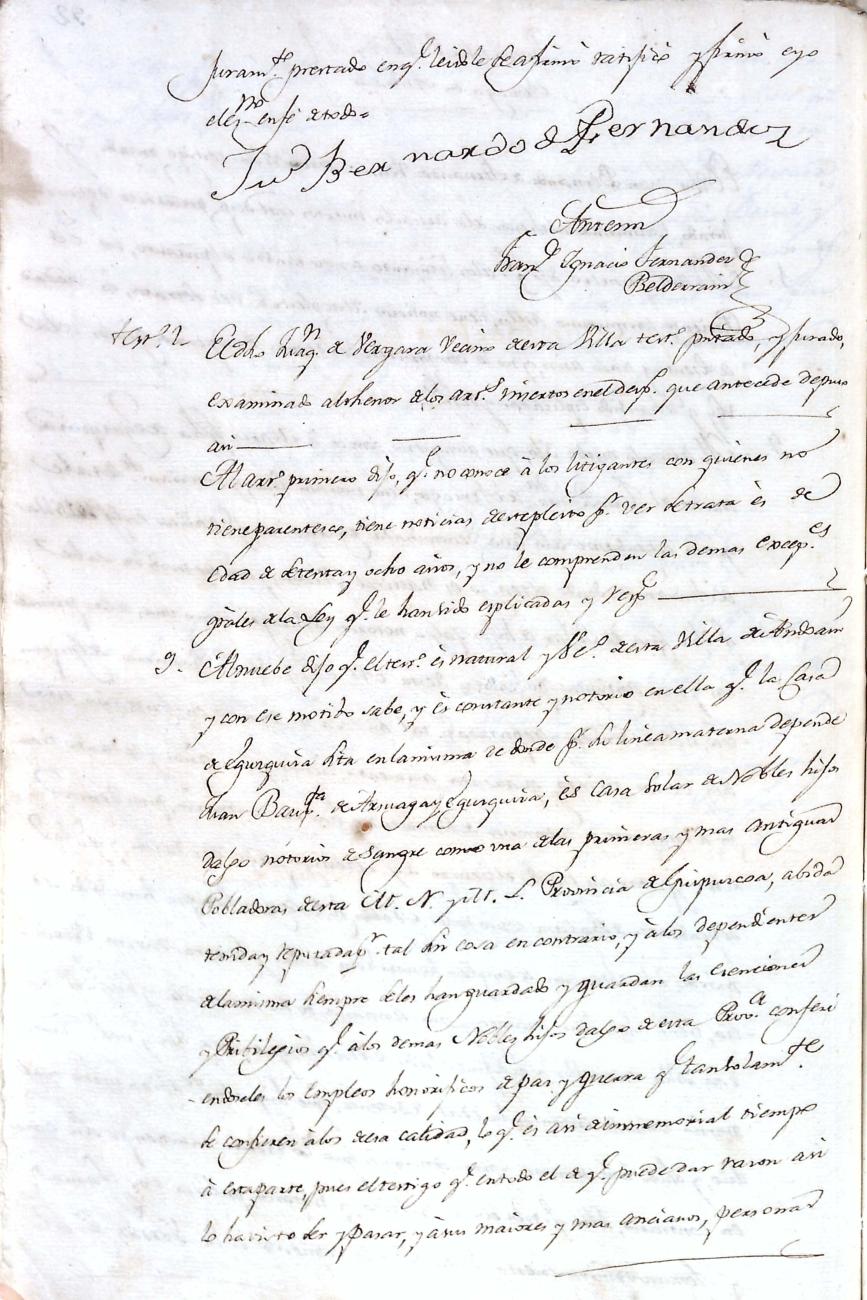 Juram.to prestado en q.e leidole se afirmó ratificó y firmó e yo
el ess.no en fé de todo =
Ju.o Bernardo de Fernandez
Antemi
Fran.co Ignacio Fernandez de
Belderrain
test.o 2 El dho Juaq.n de Vergara Vecino de esta Villa test.o pntado, y jurado,
examinado al thenor de los art.s insertos en el desp.o que antecede depuso
asi
Al art.o primero dijo, q.e no conoce à los litigantes con quienes no
tiene parentesco, tiene noticias de este pleito p.r ver se trata ès de
edad de setenta y ocho años, y no le comprenden las demas excep.es
grãles de la Ley q.e le han sido esplicadas y resp.e
9. Al nuebe dijo q.e el tes.o ès natural y Vec.o de esta Villa de Andoain
y con ese motibo sabe, y ès constante y notorio en ella q.e la Casa
de Egurguira sita en la misma de donde p.r su linea materna depende
Juan Baup.ta de Arsuaga y Egurguira, ès Casa Solar de Nobles hijos
dalgo notorios de Sangre como una de las primeras y mas antiguas
Pobladoras de esta M. N. y M. L. Provincia de Guipurcoa, abida
tenida y reputada p.r tal sin cosa en contrario, y à los dependientes
de la misma siempre se les han guardado y guardan las esenciones
y Pribilegios q.e à los demas Nobles hijos dalgo de esta Prov.a confiri
-endoseles los Empleos honorificos de paz y guerra q.e tan solam.te
se confieren à los de esa calidad, lo q.e ès asi de inmemorial tiempo
à esta parte, pues el testigo q.e en todo el de q.e puede dar razon asi
lo ha visto ser y pasar, y à sus maiores y mas ancianos, personas